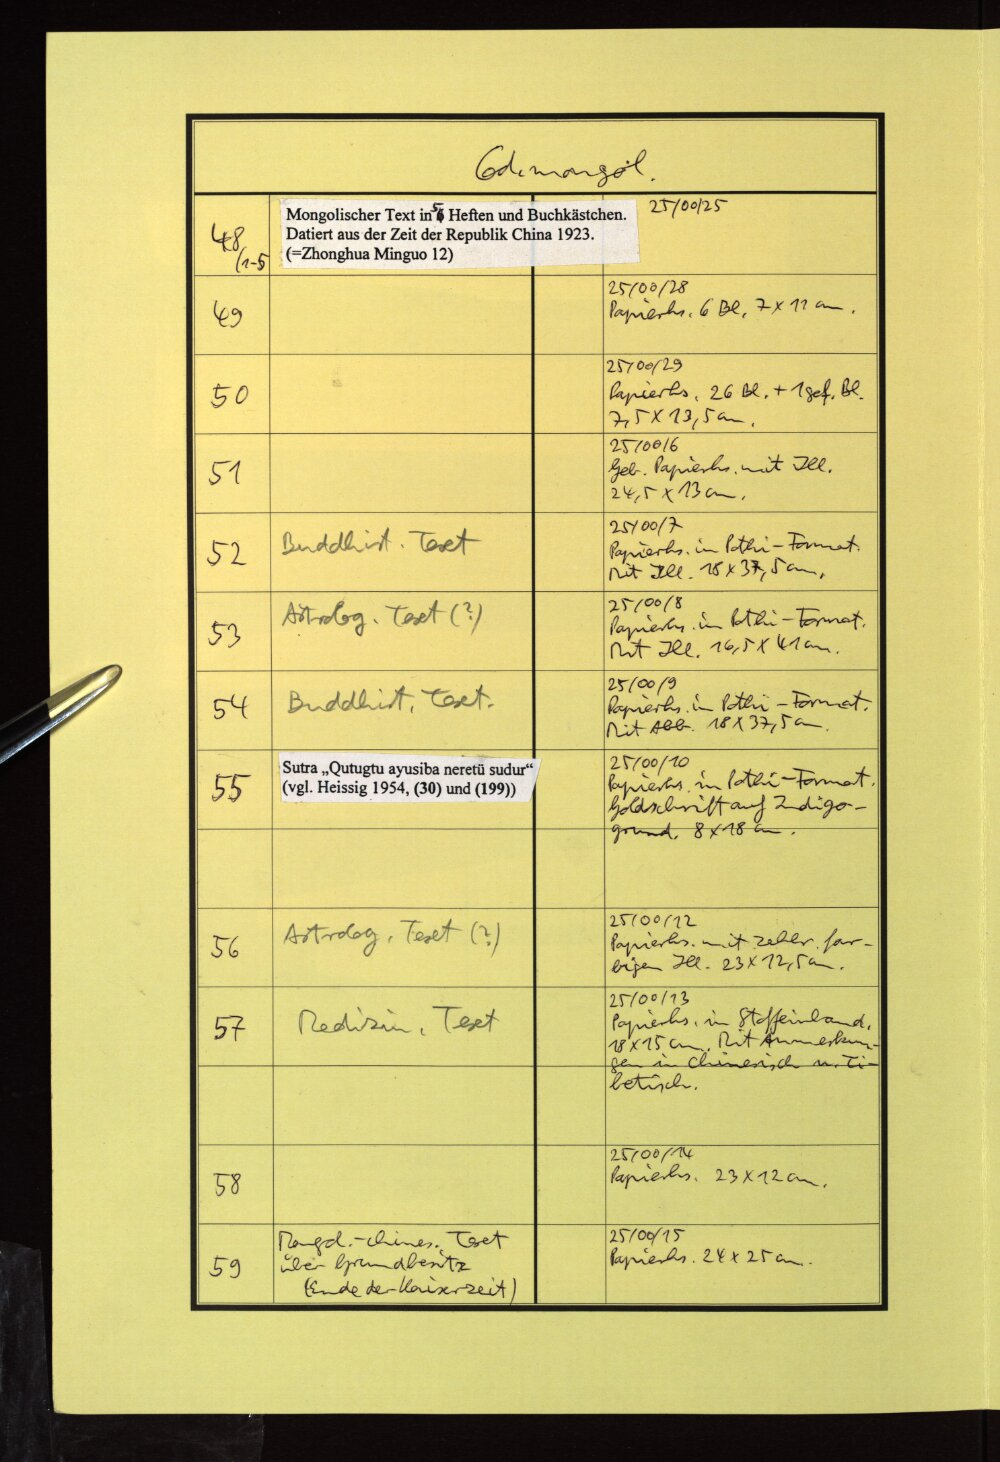 Cod. mongol.
48
/1-5
Mongolischer Text in 5 Heften und Buchkästchen.
Datiert aus der Zeit der Republik China 1923.
(=Zhonghua Minguo 12)
25/00/25
49
25/00/28
Papierhs. 6 Bl. 7 x 11 cm.
50
25/00/29
Papierhs. 26 Bl. + 1 gef. Bl.
7,5 x 13,5 cm.
51
25/00/6
Geb. Papierhs. mit Ill.
24,5 x 13 cm.
52
Buddhist. Text
25/00/7
Papierhs. in Pothi-Format.
Mit Ill. 18 x 37,5 cm.
53
Astrolog. Text (?)
25/00/8
Papierhs. in Pothi-Format.
Mit Ill. 16,5 x 41 cm.
54
Buddhist. Text.
25/00/9
Papierhs. in Pothi-Format.
Mit Abb. 18 x 37,5 cm.
55
Sutra „Qutugtu ayusiba neretü sudur“
(vgl. Heissig 1954, (30) und (199))
25/00/10
Papierhs. in Pothi-Format.
Goldschrift auf Indigo-
grund. 8 x 18 cm.
56
Astrolog. Text (?)
25/00/12
Papierhs. mit zahlr. far-
bigen Ill. 23 x 12,5 cm.
57
Medizin. Text
25/00/13
Papierhs. in Stoffeinband.
18 x 15 cm. Mit Anmerkun-
gen in Chinesisch u. Ti-
betisch.
58
25/00/14
Papierhs. 23 x 12 cm.
59
Mongol.-chines. Text
über Grundbesitz
(Ende der Kaiserzeit)
25/00/15
Papierhs. 24 x 25 cm.